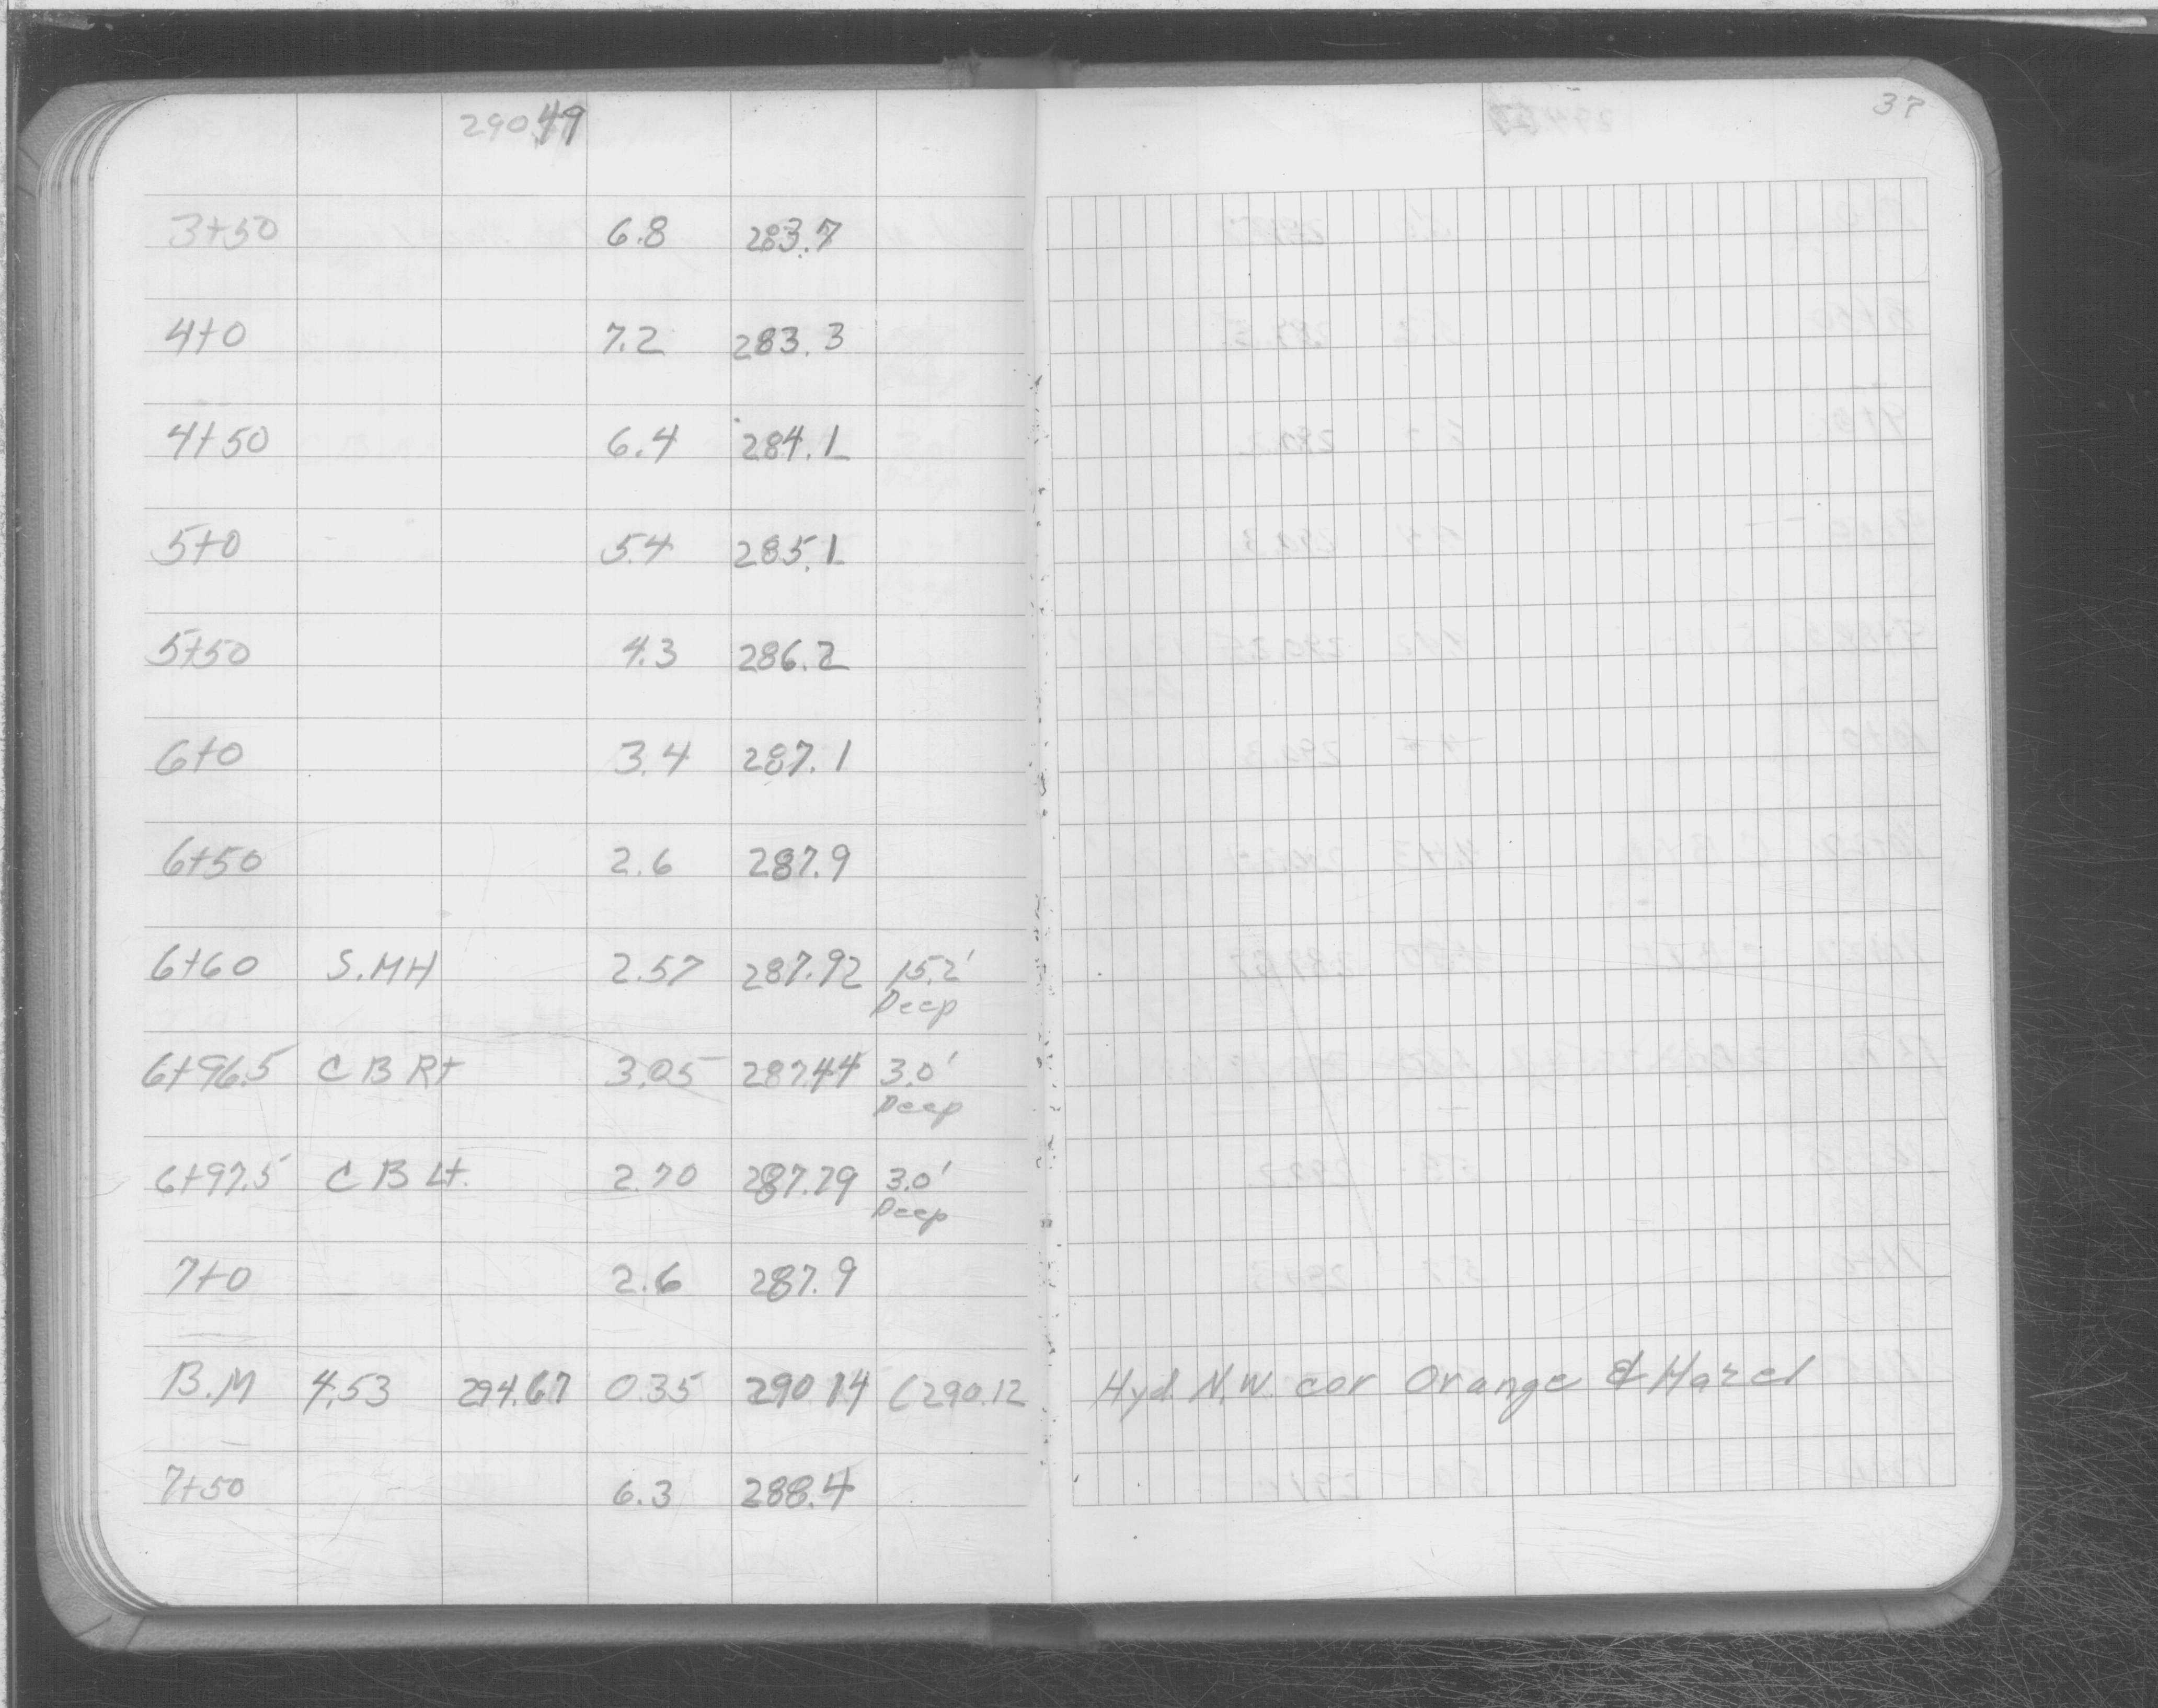 290.49
37
3+50 6.8 283.7
4+0 7.2 283.3
4+50 6.4 284.1
5+0 5.4 285.1
5+50 4.3 286.2
6+0 3.4 287.1
6+50 2.6 287.9
6+60 S.MH 2.57 287.92 15.2'
Deep
6+96.5 C B Rt 3.05 287.44 3.0'
Deep
6+97.5 C B Lt. 2.70 287.79 3.0'
Deep
7+0 2.6 287.9
B.M 4.53 294.67 0.35 290.14 (290.12 Hyd N.W. cor Orange & Hazel
7+50 6.3 288.4